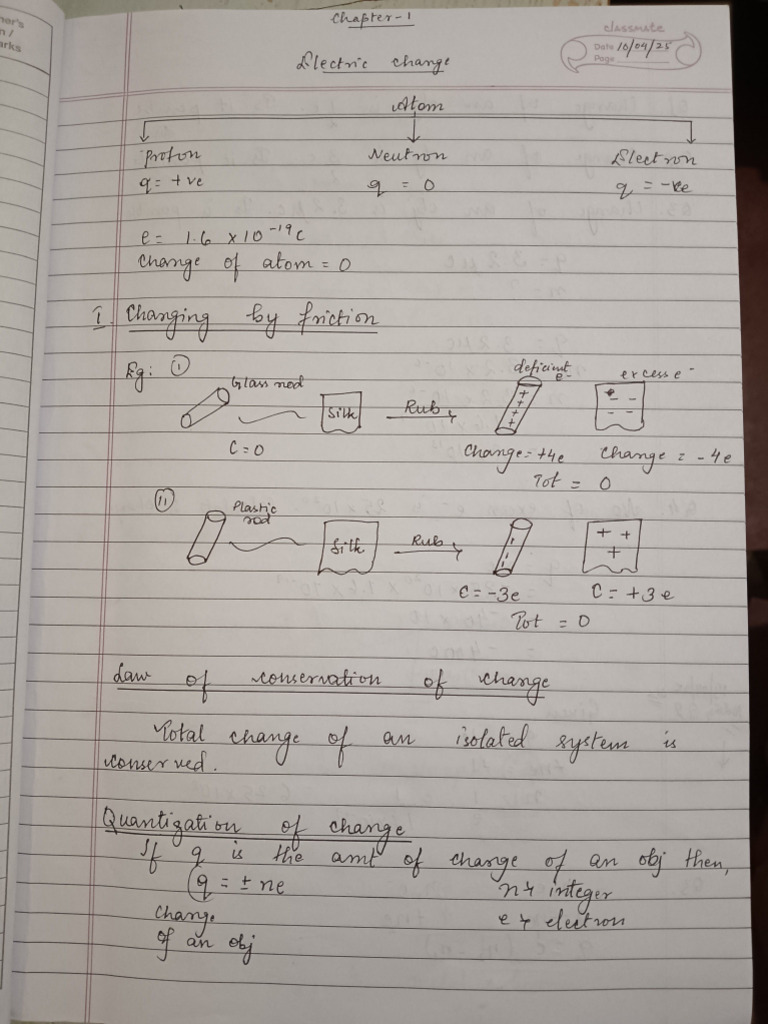 ner's
n /
arks
Chapter-1
classmate
Date 10/04/25
Page
Electric change
Atom
Proton Neutron Electron
q = +ve q = 0 q = -ve
e = 1.6 x 10⁻¹⁹c
Change of atom = 0
I. Changing by friction
Eg: (i) Glass rod Silk Rub deficient e⁻ excess e⁻
C = 0 Change = +4e Change = -4e
Tot = 0
(ii) Plastic rod Silk Rub
C = -3e C = +3e
Tot = 0
Law of conservation of change
Total change of an isolated system is
conserved.
Quantization of change
If q is the amt of change of an obj then,
q = ± ne n → integer
change e → electron
of an obj